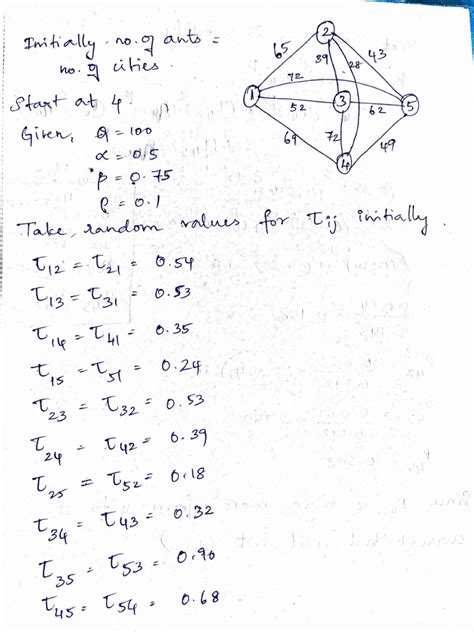 Initially no. of ants =
no. of cities.
Start at 4.
Given, Q = 100
α = 0.5
β = 0.75
ρ = 0.1
2
65
39
28
43
72
1
52
3
62
5
69
72
49
4
Take, random values for τij initially.
τ12 = τ21 = 0.54
τ13 = τ31 = 0.53
τ14 = τ41 = 0.35
τ15 = τ51 = 0.24
τ23 = τ32 = 0.53
τ24 = τ42 = 0.39
τ25 = τ52 = 0.18
τ34 = τ43 = 0.32
τ35 = τ53 = 0.90
τ45 = τ54 = 0.68